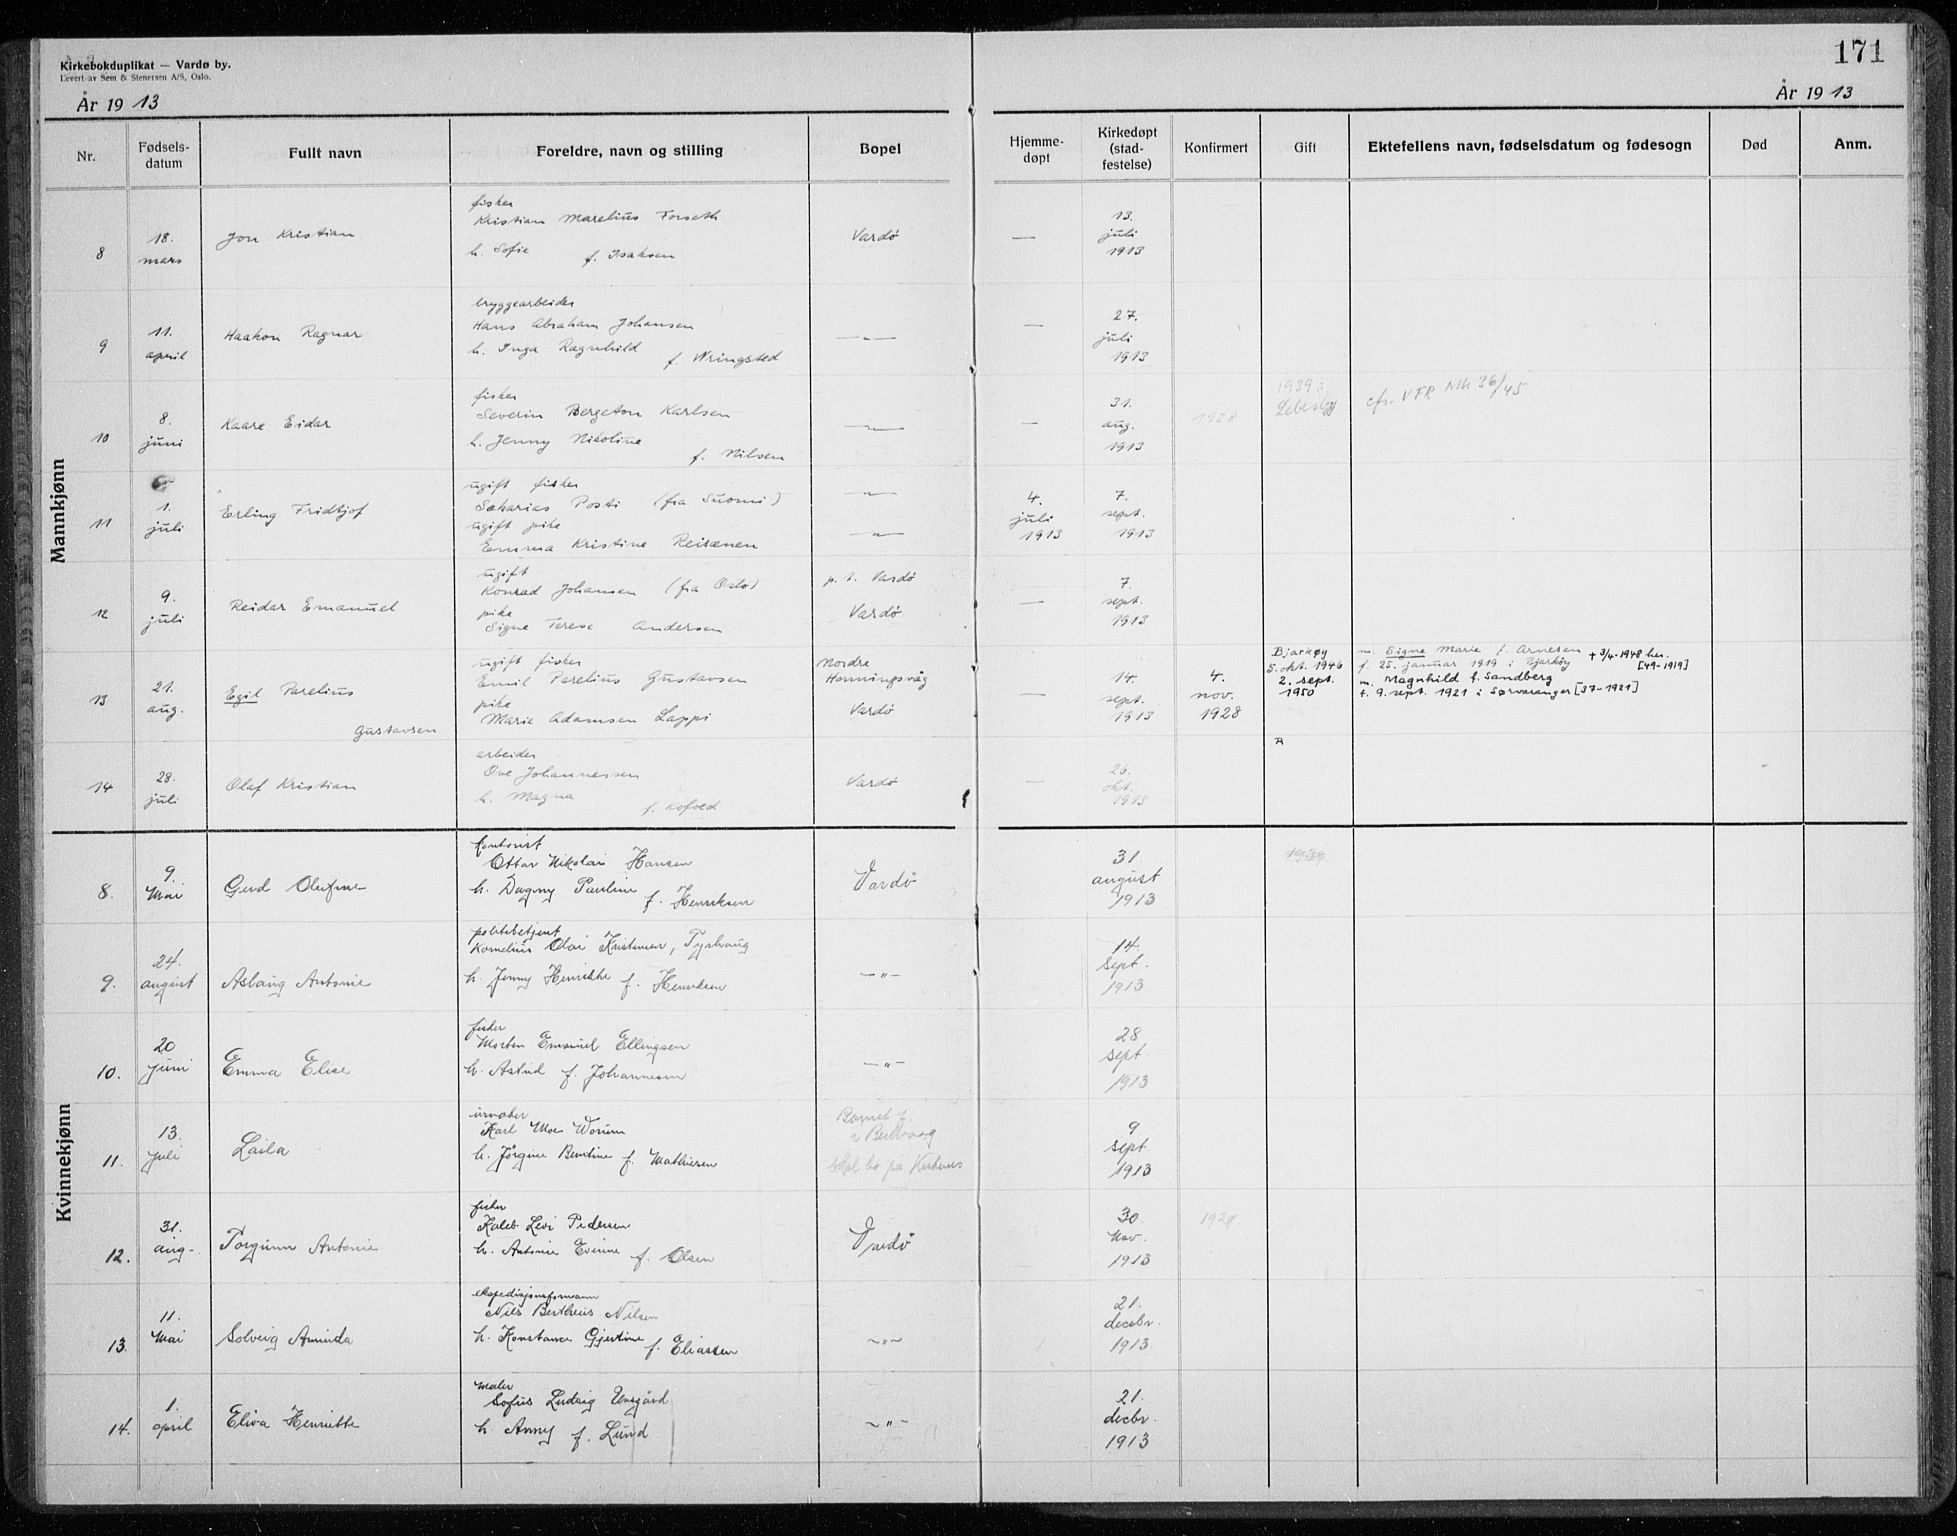 Kirkebokduplikat — Vardø by.
Levert av Sem & Stenersen A/S, Oslo.
År 1913
171
År 1913
Nr.
Fødsels-
datum
Fullt navn
Foreldre, navn og stilling
Bopel
Hjemme-
døpt
Kirkedøpt
(stad-
festelse)
Konfirmert
Gift
Ektefellens navn, fødselsdatum og fødesogn
Død
Anm.
Mannkjønn
8
18.
mars
Jon Kristian
fisker
Kristian Marelius Forseth
h. Sofie f. Isaksen
Vardø
—
13.
juli
1913
9
11.
april
Haakon Ragnar
bryggearbeider
Hans Abraham Johansen
h. Inga Ragnhild f. Wringsted
—„—
—
27.
juli
1913
10
8.
juni
Kaare Eidar
fisker
Severin Bergeton Karlsen
h. Jenny Nikoline
f. Nilsen
—„—
—
31.
aug.
1913
1928
1939 i
Lebesby
cfr. VFR Mk 36/45
11
1.
juli
Erling Fridtjof
ugift fisker
Sakarias Posti (fra Suomi)
ugift pike
Emma Kristine Reisænen
—„—
—„—
4.
juli
1913
7.
sept.
1913
12
9.
juli
Reidar Emanuel
ugift
Konrad Johansen (fra Oslo)
pike
Signe Terese Andersen
p. t. Vardø
Vardø
—
7.
sept.
1913
13
21.
aug.
Egil Parelius
Gustavsen
ugift fisker
Emil Parelius Gustavsen
pike
Marie Adamsen Lappi
Nordre
Honningsvåg
Vardø
—
14.
sept.
1913
4.
nov.
1928
Bjarkøy
5. okt. 1946
2. sept.
1950
m. Signe Marie f. Arnesen + 3/4-1948 her.
f. 25. januar 1919 i Bjarkøy [49-1919]
m. Magnhild f. Sandberg
f. 9. sept. 1921 i Sørvaranger [37-1921]
14
28.
juli
Olaf Kristian
arbeider
Ove Johannessen
h. Magna
f. Kofoed
Vardø
—
26.
okt.
1913
R
Kvinnekjønn
8.
9.
Mai
Gerd Olufine
kontorist
Ottar Nikolai Hansen
h. Dagny Pauline f. Henriksen
Vardø
31.
august
1913
1939
9.
24.
august
Aslaug Antonie
politibetjent
Kornelius Olai Kristensen, Tyshaug
h. Jenny Henrikke f. Henriksen
—„—
14.
Sept.
1913
10.
20
juni
Emma Elise
fisker
Morten Emanuel Ellingsen
h. Astrid f. Johannesen
—„—
28
sept.
1913
11.
13.
juli
Laila
urmaker
Karl Moe Worum
h. Jørgine Bentine f. Mathisen
Barnet f.
i Berlevaag
skal bo på Kirkenes
9
sept.
1913
12.
31.
aug.
Torgunn Antonie
fisker
Kaleb Levi Pedersen
h. Antonie Evine f. Olsen
Vardø
30.
Nov.
1913
1928
13.
11.
Mai
Solveig Aminda
ekspedisjonsformann
Nils Bertheus Nilsen
h. Konstance Gjertine f. Eliassen
—„—
21.
decbr.
1913
14.
1.
april
Eliva Henriette
maler
Sofus Ludvig
h. Anny f. Lund
—„—
21.
decbr.
1913